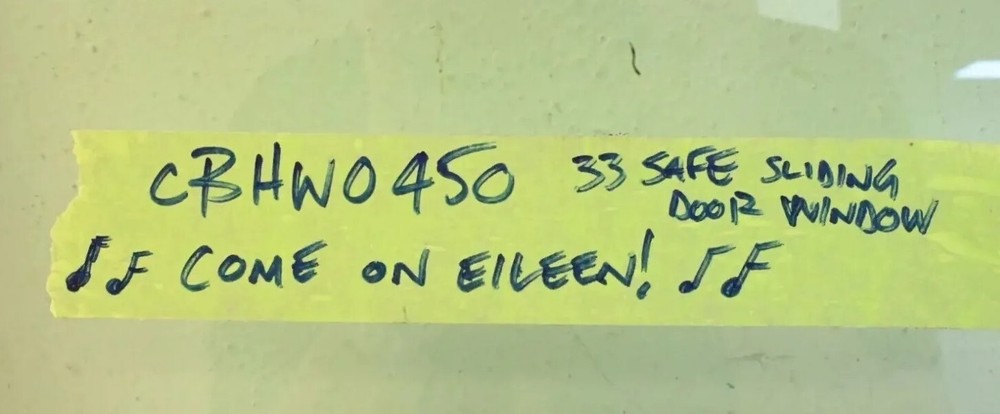 CBHW0450 33 SAFE SLIDING
DOOR WINDOW
♪♪ COME ON EILEEN! ♪♪